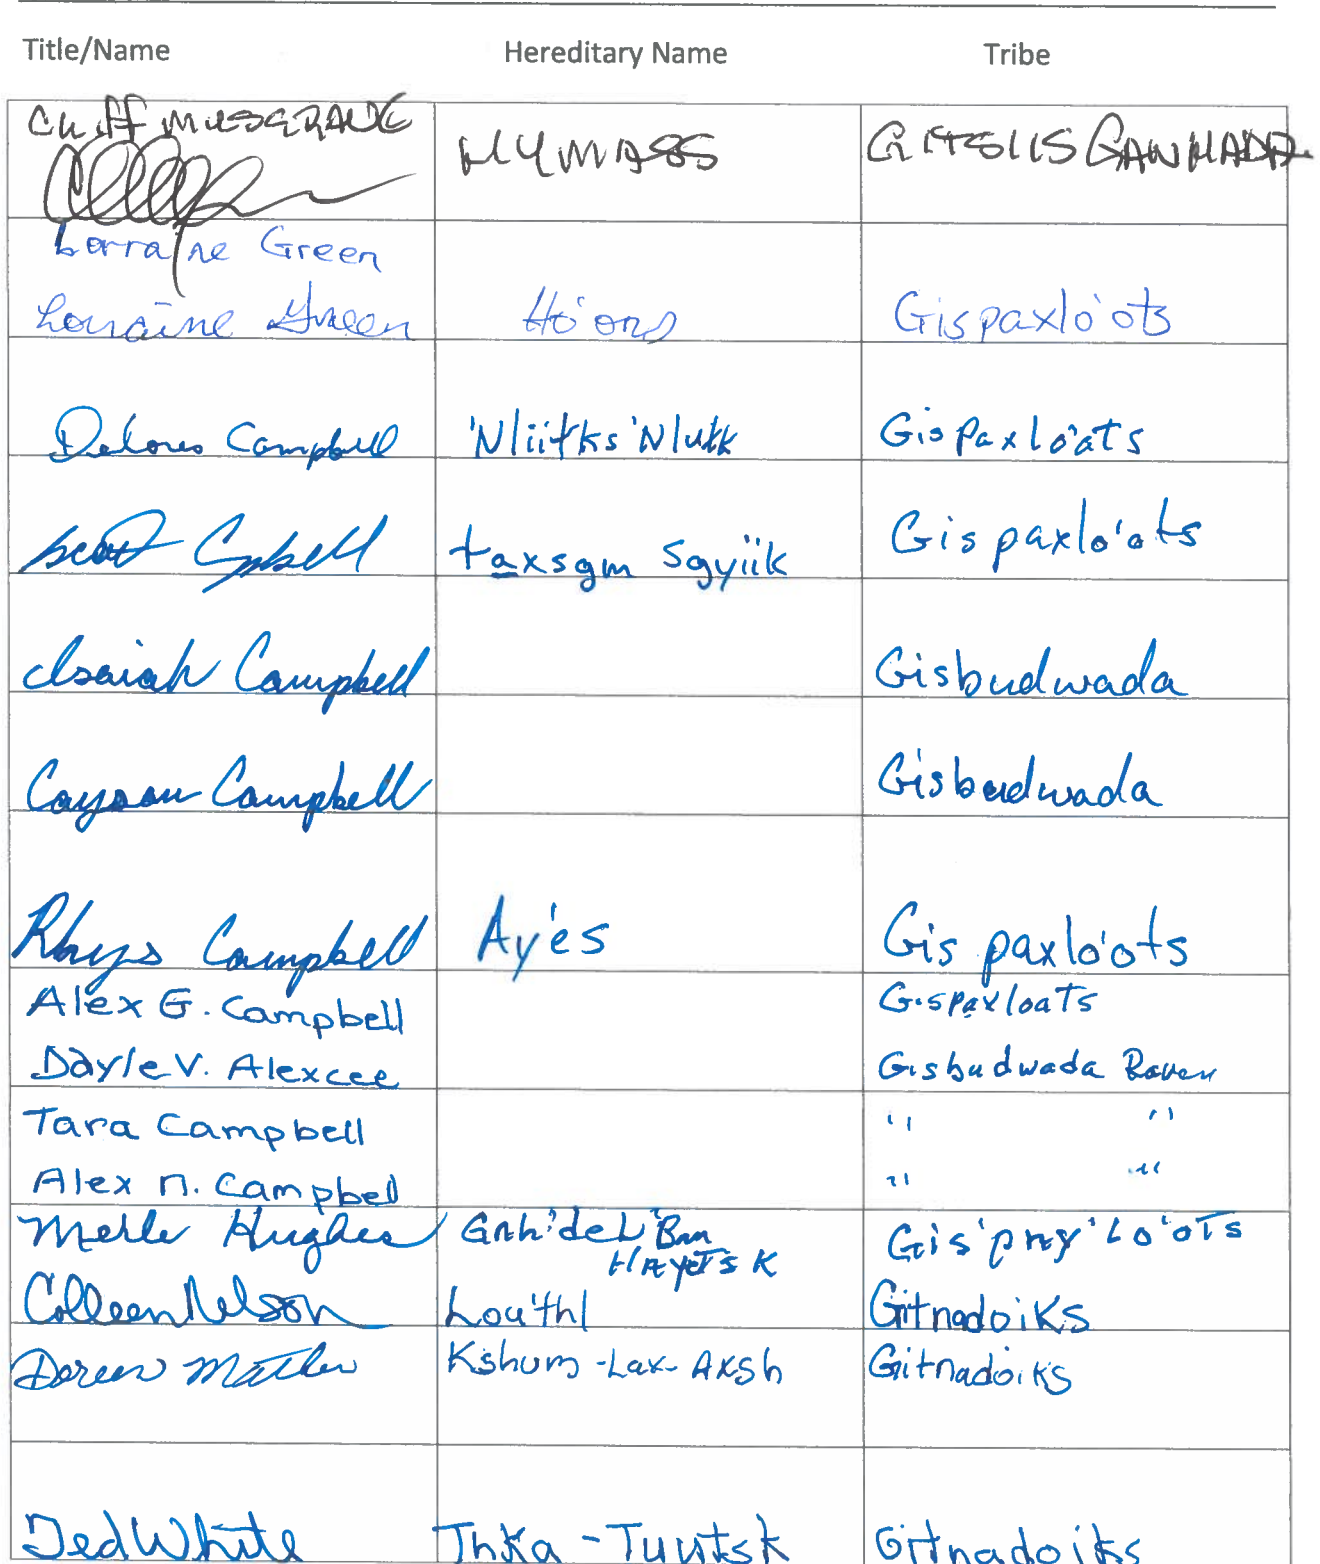 Title/Name Hereditary Name Tribe
Cliff MUSGRAVE
HYMASS GITSIIS GANHADA
Lorraine Green
Lorraine Green Ho'ons Gispaxlo'ots
Delores Campbell 'Nliitks 'Nlutk Gispaxlo'ats
Scott Campbell taxsgm Sgyiik Gispaxlo'ots
Isaiah Campbell Gisbudwada
Cayson Campbell Gisbudwada
Rhys Campbell Ay'es Gis paxlo'ots
Alex G. Campbell Gispaxloats
Dayle V. Alexcee Gisbudwada Raven
Tara Campbell " "
Alex n. Campbel " "
Merle Hughes Gis'pay'Lo'oTs
Colleen Nelson Lou'thl GitnadoiKs
Doreen Kshum-Lax-AKsh GitnadoiKs
Ted White Gitnadoiks